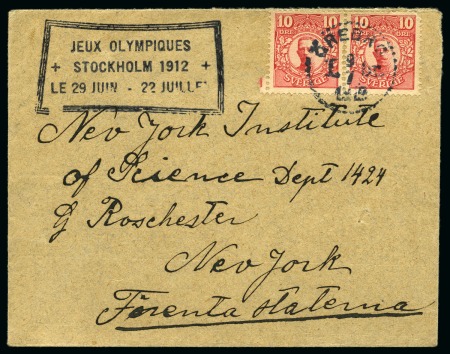 JEUX OLYMPIQUES
+ STOCKHOLM 1912 +
LE 29 JUIN - 22 JUILLET
10 10
ÖRE ÖRE
SVERIGE SVERIGE
New York Institute
of Science Dept 1424
G Roschester
New York
Förenta staterna